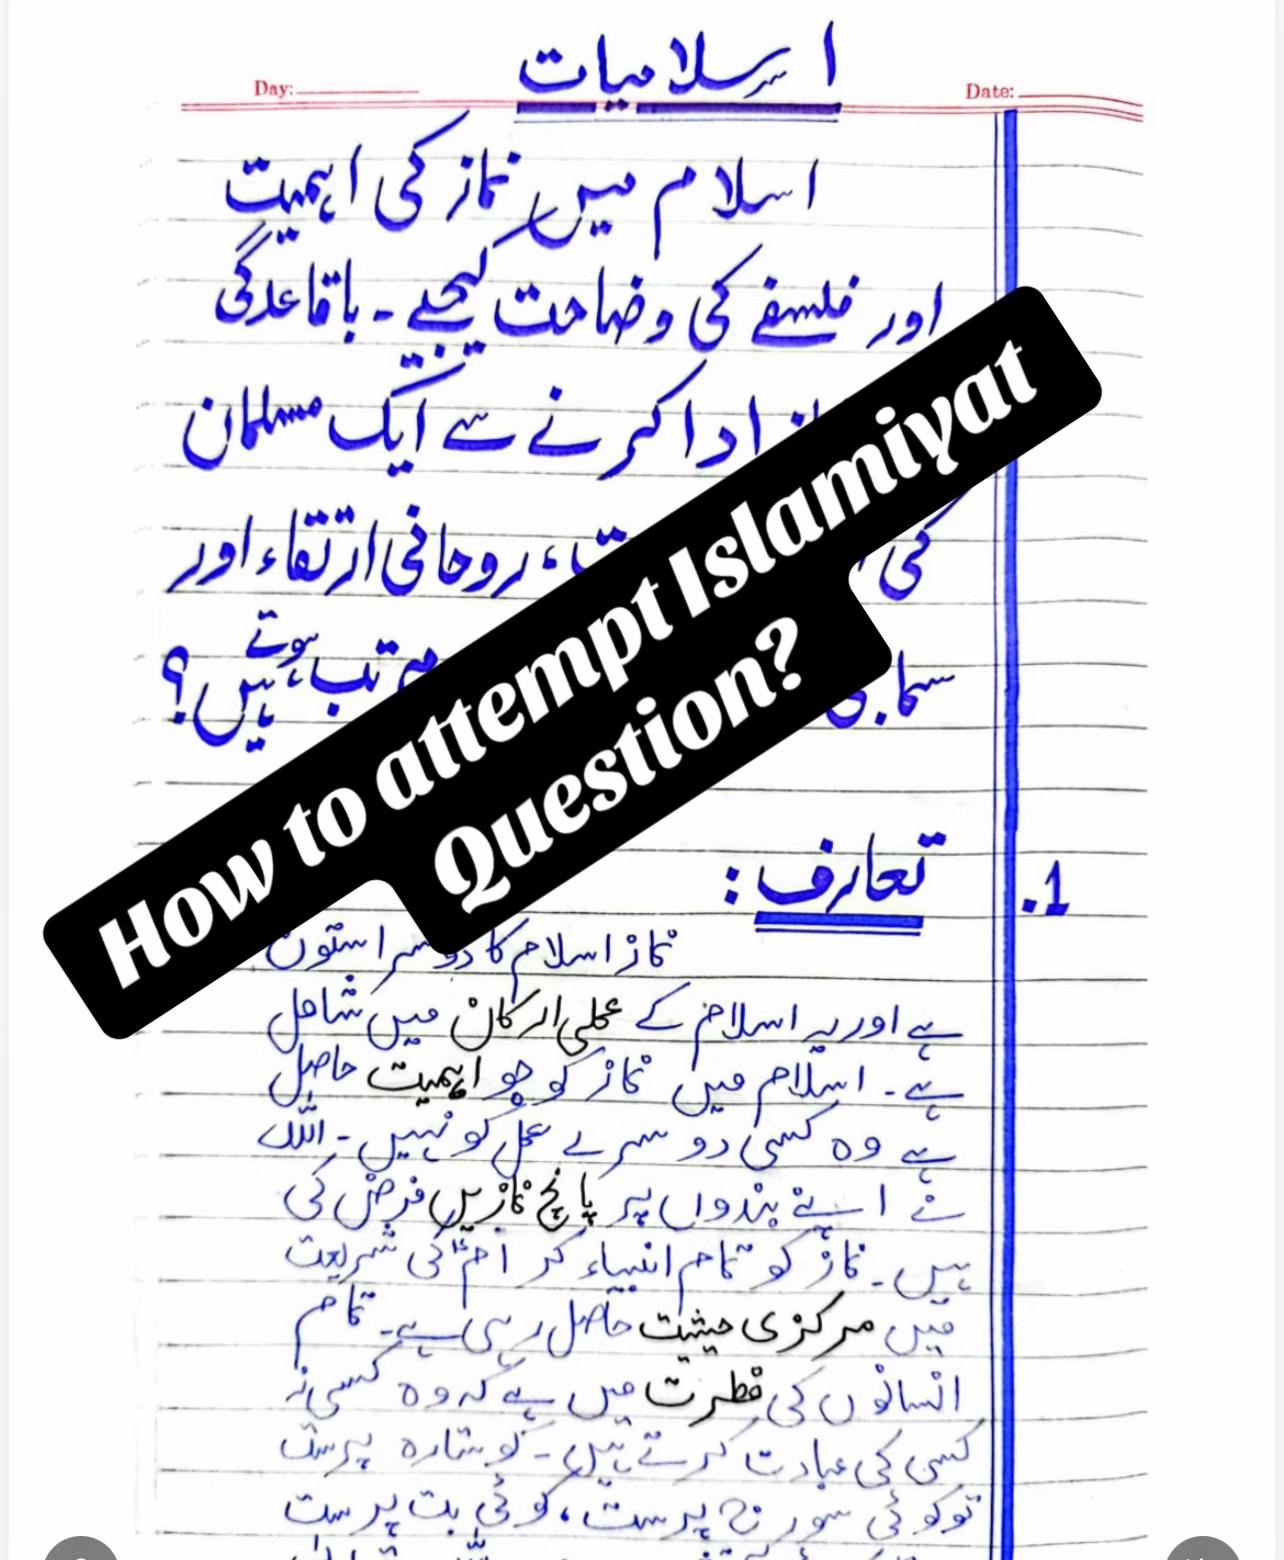 اسلامیات
Day:
Date:
اسلام میں نماز کی اہمیت
اور فلسفے کی وضاحت کیجیے ۔ باقاعدگی
ادا کرنے سے ایک مسلمان
کی
، روحانی ارتقاء اور
سماجی
مرتب ہوتے
ہیں؟
How to attempt Islamiyat
Question?
1. تعارف:
نماز اسلام کا دوسرا ستون
ہے اور یہ اسلام کے عملی ارکان میں شامل
ہے ۔ اسلام میں نماز کو جو اہمیت حاصل
ہے وہ کسی دوسرے عمل کو نہیں ۔ اللہ
نے اپنے بندوں پر پانچ نمازیں فرض کی
ہیں ۔ نماز کو تمام انبیاء کر ام کی شریعت
میں مرکزی حیثیت حاصل رہی ہے۔ تمام
انسانوں کی فطرت میں ہے کہ وہ کسی نہ
کسی کی عبادت کرتے ہیں ۔ کو ستارہ پرست
تو کوئی سورج پرست ، کوئی بت پرست